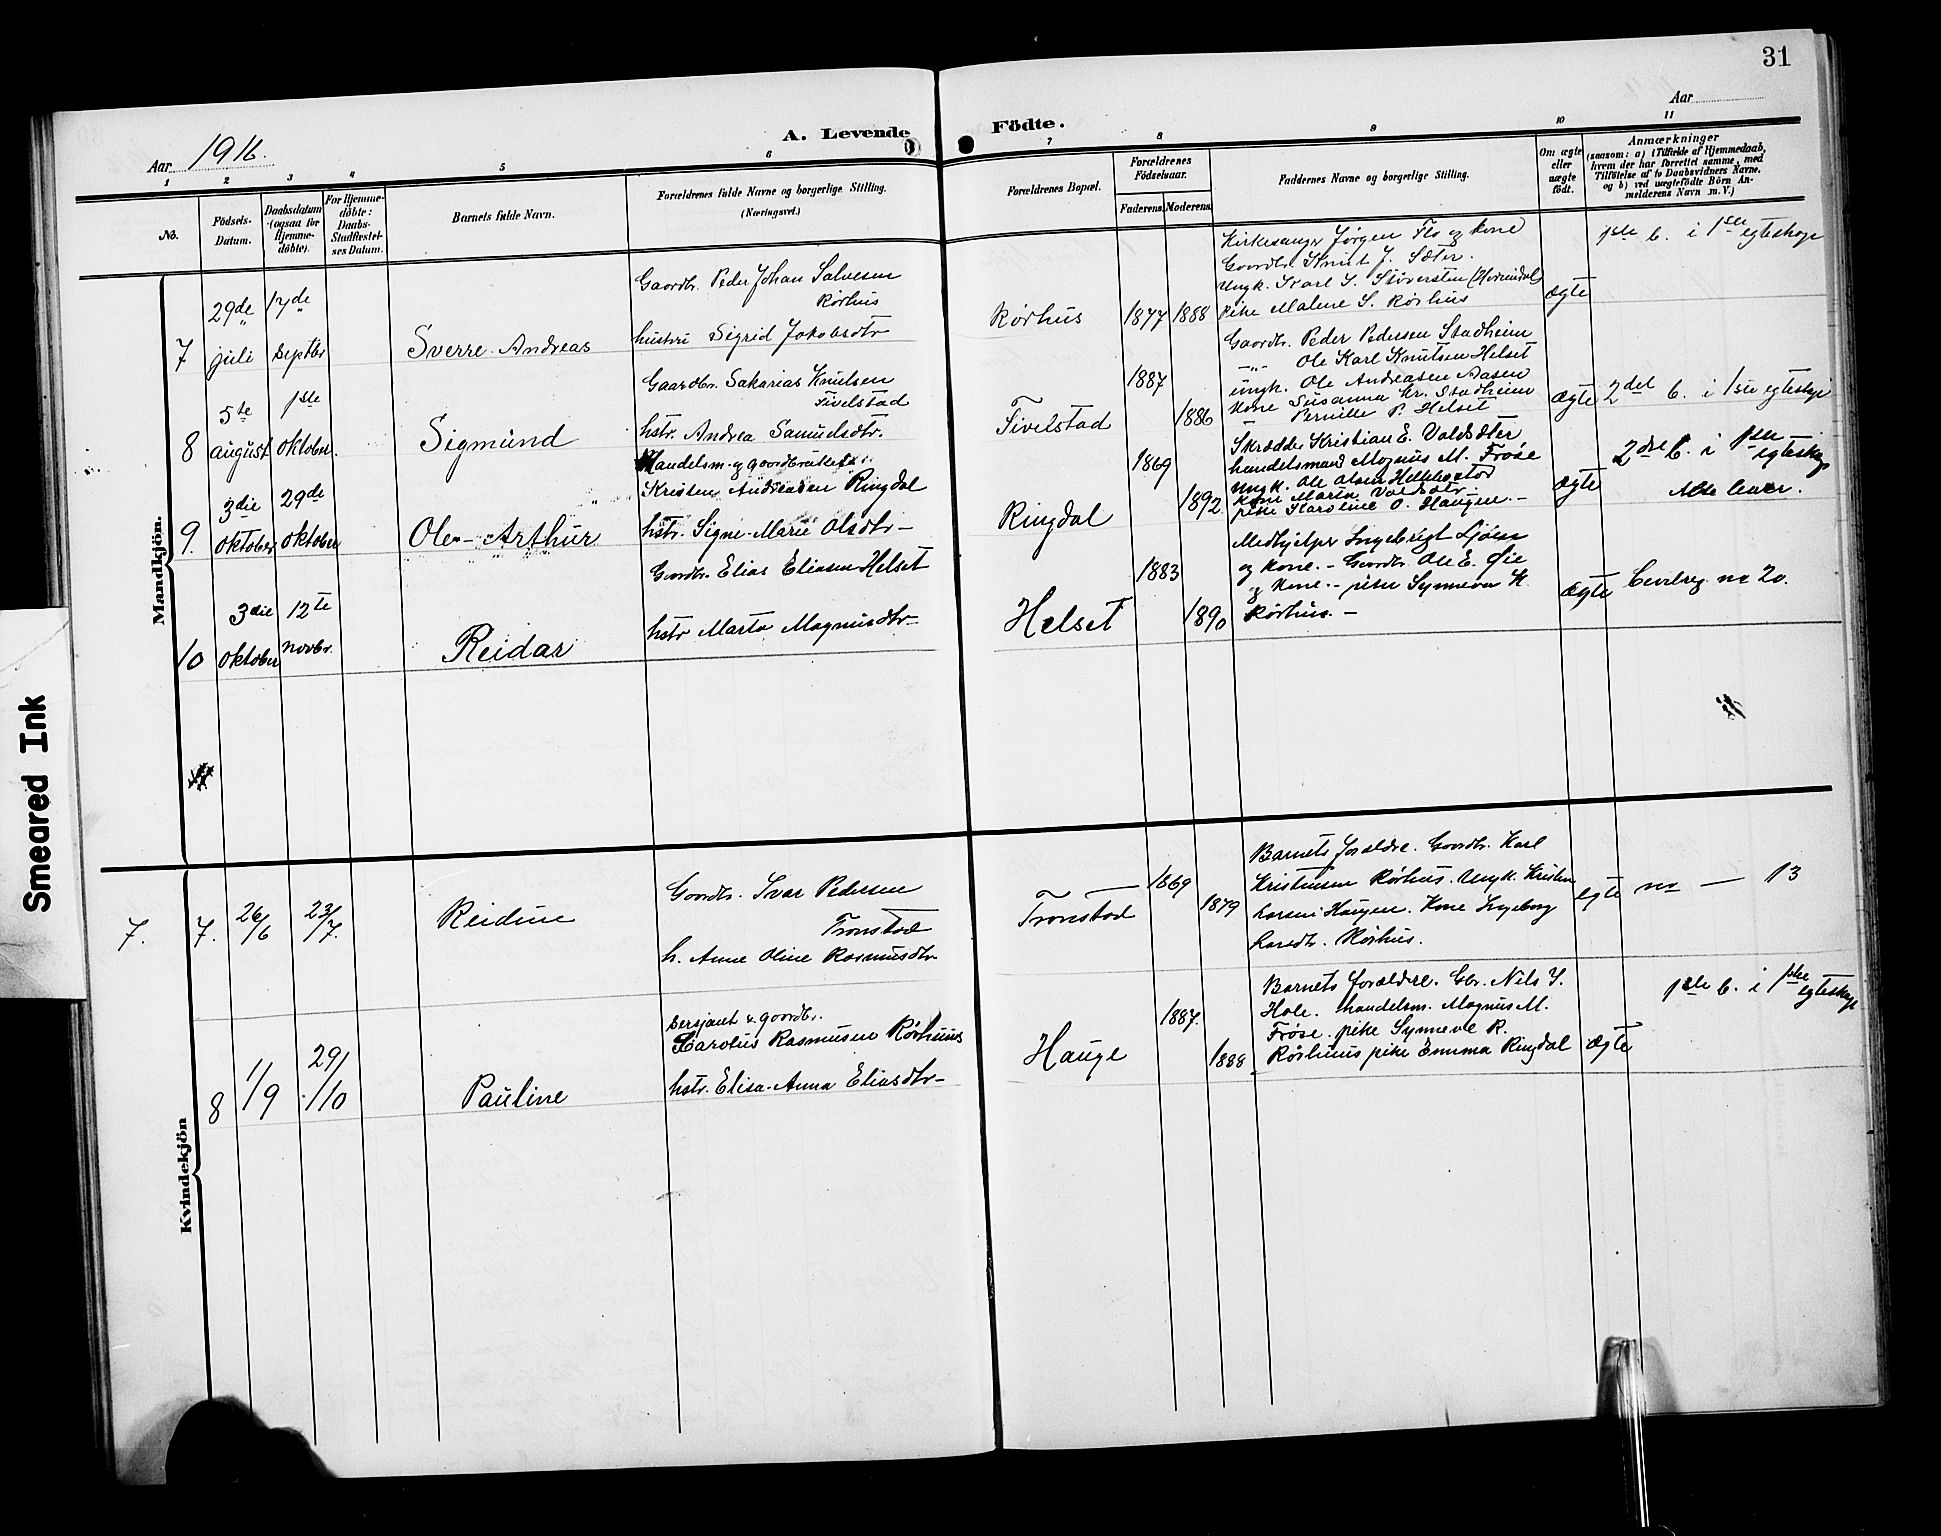 31
Aar 1916.
A. Levende Födte.
Aar
1 2 3 4 5 6 7 8 9 10 11
No.
Födsels-Datum.
Daabsdatum (ogsaa for Hjemme-döbte).
For Hjemme-döbte: Daabs-Stadfæstel-ses Datum.
Barnets fulde Navn.
Forældrenes fulde Navne og borgerlige Stilling.
(Næringsvei.)
Forældrenes Bopæl.
Forældrenes Födselsaar.
Faderens. Moderens.
Faddernes Navne og borgerlige Stilling.
Om ægte eller uægte födt.
Anmærkninger
(saasom: a) i Tilfælde af Hjemmedaab,
hvem der har forrettet samme, med
Tilföielse af to Daabsvidners Navne.
og b) ved uægtefödte Börn An-
melderens Navn m. V.)
Mandkjön.
7
29de juli
17de septbr
Sverre Andreas
Gaardbr. Peder Johan Salvesen
Rørhus
hustru Sigrid Jakobsdtr
Rørhus
1877 1888
Kirkesanger Jørgen Flo og kone
Gaardbr. Knut J. Sæter.
Ungk. Karl S. Støverstein (Hornindal)
pike Malene S. Rørhus
ægte
1ste b. i 1ste egteskap
8
5te august
1ste oktober.
Sigmund
Gaardbr. Sakarias Knutsen
Fivelstad
hstr. Andrea Samuelsdtr.
Fivelstad
1887
1886
Gaardbr. Peder Pedersen Stadheim
—"— Ole Karl Knutsen Helset
ungk. Ole Andreasen Aasen
kone Susanna Kr. Stadheim
Pernille P. Helset
ægte
2det b. i 1ste egteskap
9.
3die oktober
29de oktober
Ole Arthur
Handelsm. og gaardbruker
Kristen Andreasen Ringdal
hstr. Signe Marie Olsdtr —
Ringdal
1869
1892
Skrædder Kristian E. Valdsæter
handelsmand Magnus M. Frøse
Ungk. Ole Olsen
kone Marta Valdsætr.
pike Karoline O. Haugen. —
ægte
2det b. i 1ste egteskap
Alle lever.
10
3die oktober
12te novbr.
Reidar
Gaardbr. Elias Eliasen Helset
hstr Marta Magnusdtr —
Helset
1883
1890
Medhjelper Ingebrigt Ljøen
og kone. — Gaardbr. Ole E. Øie
og kone. — pike Synneva K
Rørhus. —
ægte
Civilreg. no 20.
Kvindekjön
7. 7.
26/6
23/7.
Reidun
Gaardbr. Ivar Pedersen
Tronstad
h. Anne Oline Rasmusdtr
Tronstad
1869
1879
Barnets forældre. Gaardbr. Karl
Kristensen Rørhus. Ungk. Kristen
Larsen Haugen. Kone Ingeborg
Larsdtr. Rørhus.
egte
no — 13
8
11/9
29/10
Pauline
Sersjant & gaardbr.
Karolus Rasmusen Rørhuus
hstr. Elisa Anna Eliasdtr —
Hauge
1887.
1888
Barnets forældre. Gbr. Nils I.
Hole. handelsm. Magnus M.
Frøse. pike Synneve R.
Rørhuus pike Emma Ringdal
ægte
1ste b. i 1ste egteskap
Smeared Ink